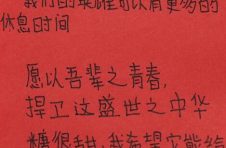 我们的英雄可以有更多的
休息时间
愿以吾辈之青春,
捍卫这盛世之中华
糖很甜,我希望它能给